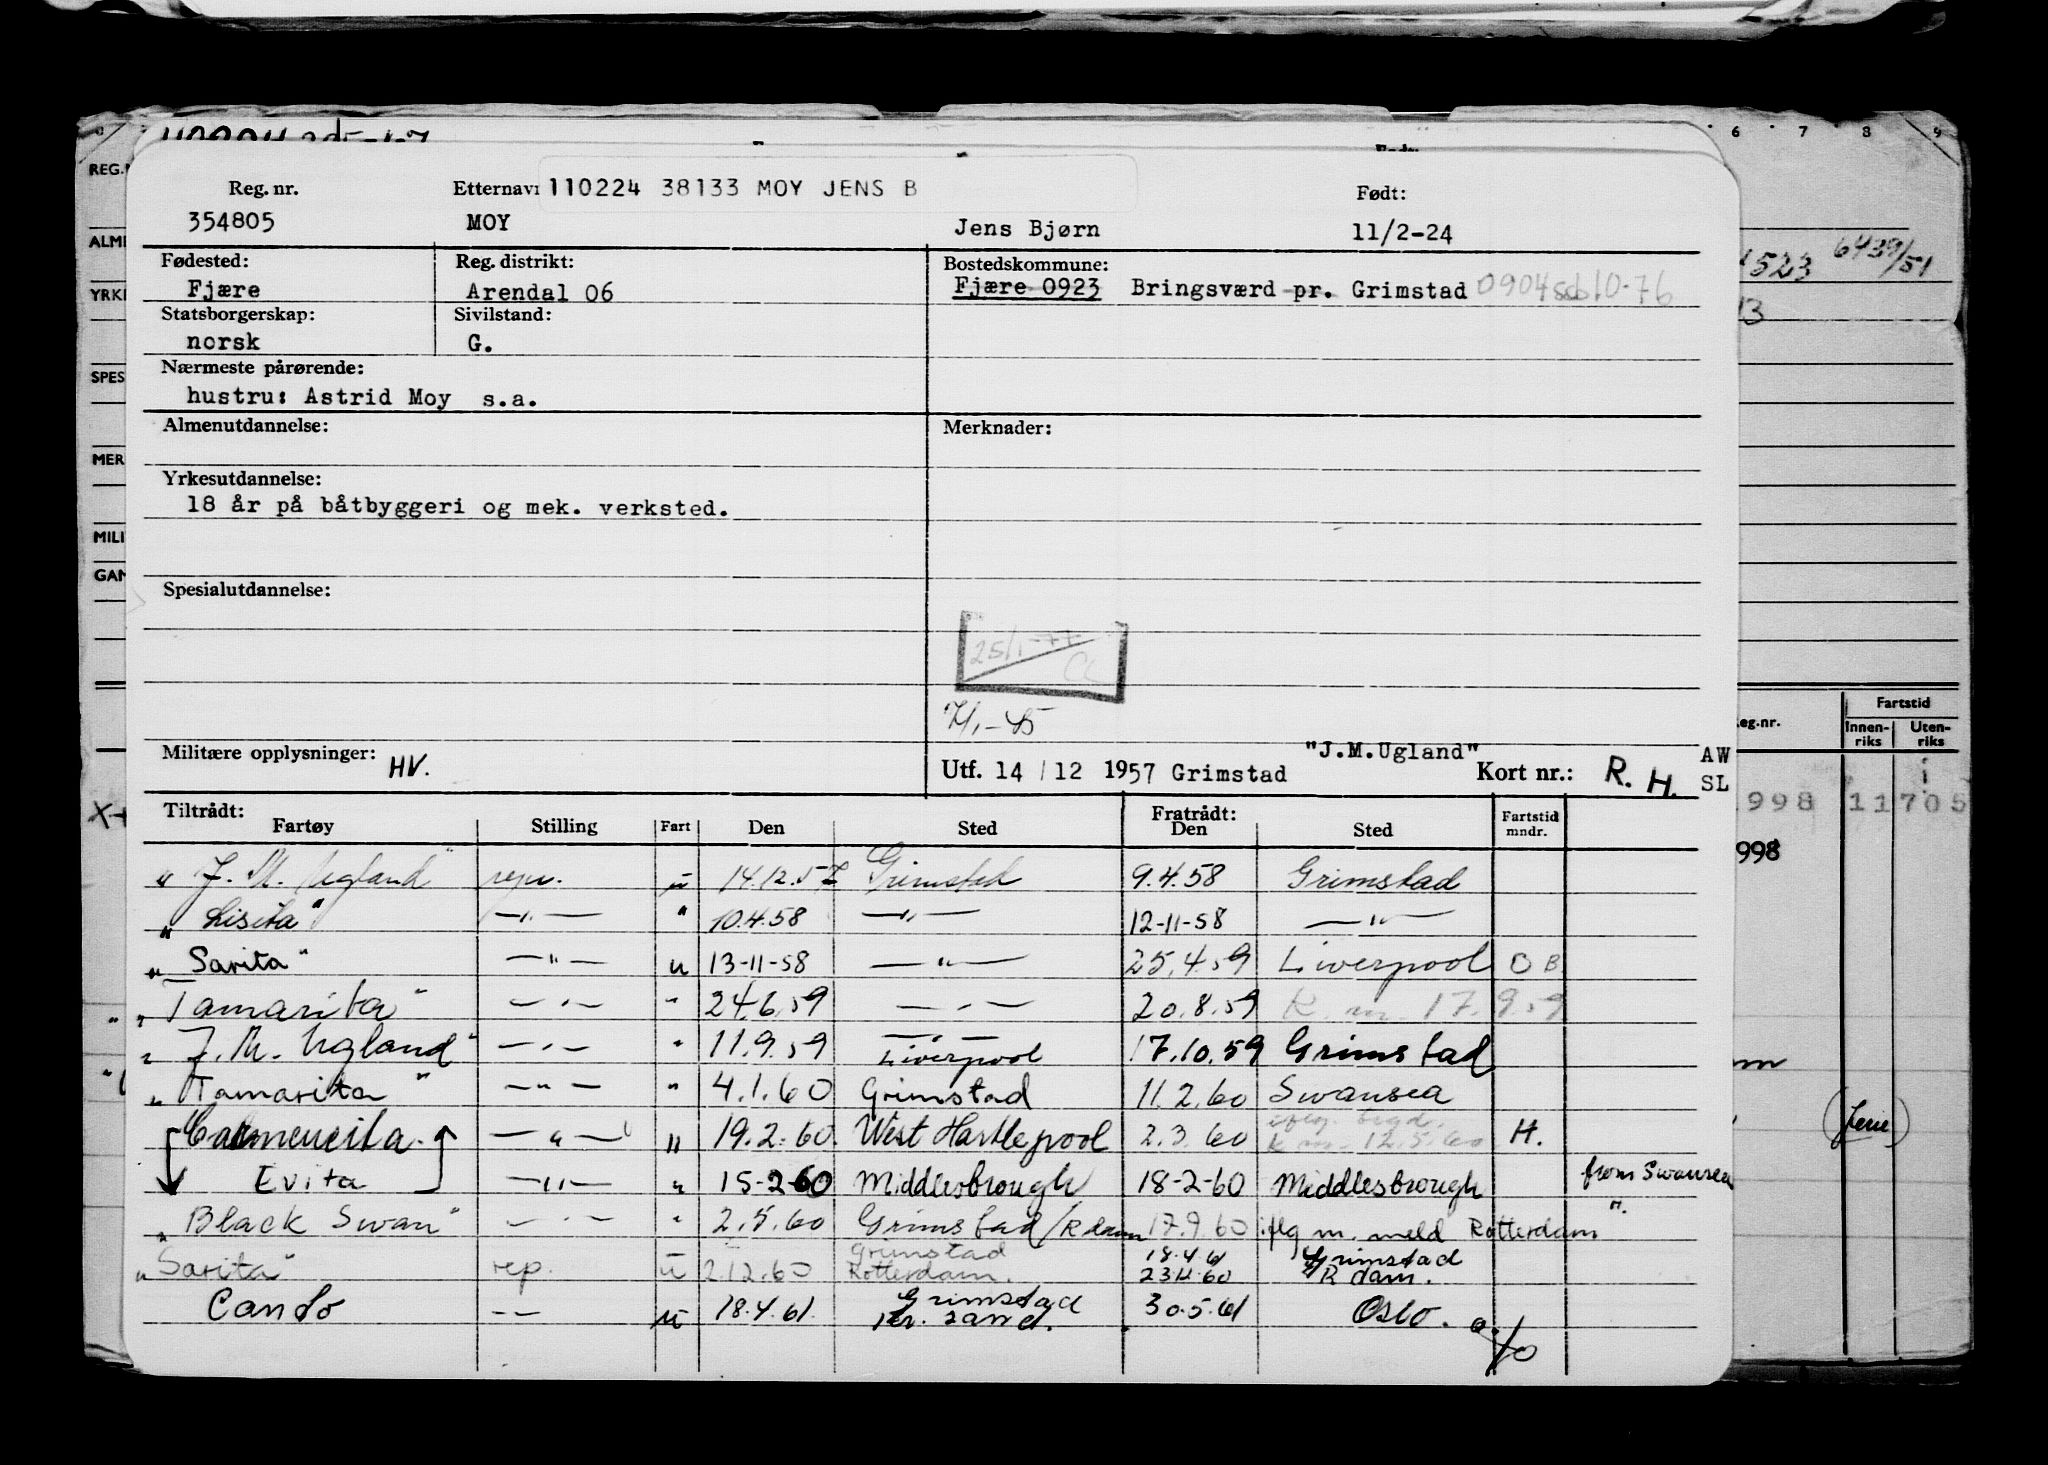 6 7 8 9
REG.
Reg. nr. Etternavn 110224 38133 MOY JENS B Født:
354805 MOY Jens Bjørn 11/2-24
ALM
Fødested: Reg. distrikt: Bostedskommune:
Fjære Arendal 06 Fjære 0923 Bringsværd pr. Grimstad 0904 ssb 10-76
6439/51
YRK
Statsborgerskap: Sivilstand:
norsk G.
Nærmeste pårørende:
SPES
hustru: Astrid Moy s.a.
Almenutdannelse: Merknader:
MER
Yrkesutdannelse:
18 år på båtbyggeri og mek. verksted.
MILI
GAN
Spesialutdannelse:
25/1-77
CL
Fartstid
eg.nr. Innen-riks Uten-riks
Militære opplysninger: HV. Utf. 14/12 1957 Grimstad "J.M.Ugland" Kort nr.: R. H. AW
SL
998 11705
998
Tiltrådt: Fratrådt:
Fartøy Stilling Fart Den Sted Den Sted Fartstid mndr.
"J. M. Ugland" rep. u 14.12.57 Grimstad 9.4.58 Grimstad
"Lisita" —"— " 10.4.58 —"— 12-11-58 —"—
"Sarita" —"— u 13-11-58 —"— 25.4.59 Liverpool O B
"Tamarita" —"— " 24.6.59 —"— 20.8.59 K. m. 17.9.59
"J. M. Ugland" —"— " 11.9.59 —"— Liverpool 17.10.59 Grimstad
"Tamarita" —"— " 4.1.60 Grimstad 11.2.60 Swansea
Carmencita —"— " 19.2.60 West Hartlepool 2.3.60 K m. 12.5.60 H.
Evita —"— " 15-2-60 Middlesbrough 18-2-60 Middlesbrough from Swansea
"Black Swan" —"— " 2.5.60 Grimstad / R dam 17.9.60 iflg m. meld Rotterdam "
"Sarita" rep. u 2.12.60 Grimstad Rotterdam. 18.4.61 Grimstad
23.11.60 R dam.
Cando —— u 18.4.61. Grimstad Kr. sand. 30.5.61 Oslo.